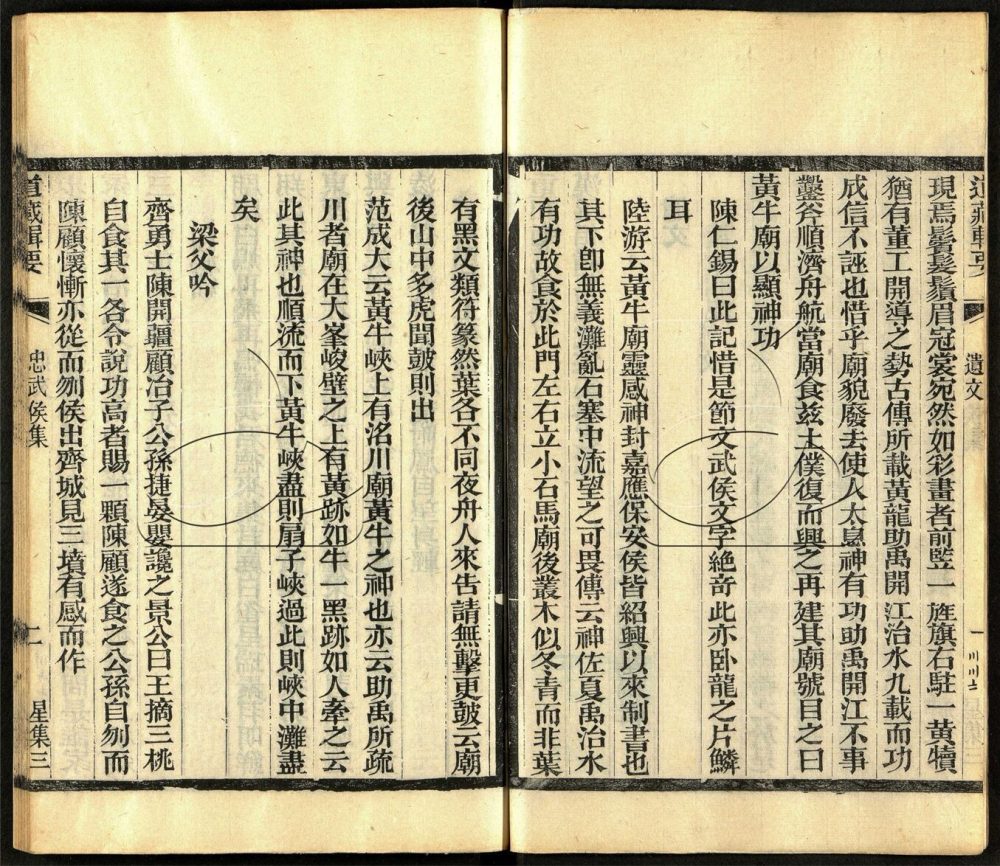 道藏輯要
遺文
現焉鬚髮鬚眉冠裳宛然如彩畫者前豎一旌旗右駐一黃犢
猶有董工開導之勢古傳所載黃龍助禹開江治水九載而功
成信不誣也惜乎廟貌廢去使人太息神有功助禹開江不事
鑿斧順濟舟航當廟食茲土僕復而興之再建其廟號目之曰
黃牛廟以顯神功
陳仁錫曰此記惜是節文武侯文字絕奇此亦卧龍之片鱗
耳
陸游云黃牛廟靈感神封嘉應保安侯皆紹興以來制書也
其下卽無義灘亂石塞中流望之可畏傳云神佐夏禹治水
有功故食於此門左右立小石馬廟後叢木似冬青而非葉
有黑文類符篆然葉各不同夜舟人來告請無擊更鼓云廟
後山中多虎聞鼓則出
范成大云黃牛峽上有洺川廟黃牛之神也亦云助禹所疏
川者廟在大峯峻壁之上有黃跡如牛一黑跡如人牽之云
此其神也順流而下黃牛峽盡則扇子峽過此則峽中灘盡
矣
梁父吟
齊勇士陳開疆顧冶子公孫捷晏嬰讒之景公曰王摘三桃
自食其一各令說功高者賜一顆陳顧遂食之公孫自刎而
陳顧懷慚亦從而刎侯出齊城見三墳有感而作
道藏輯要
忠武侯集
二
星集三